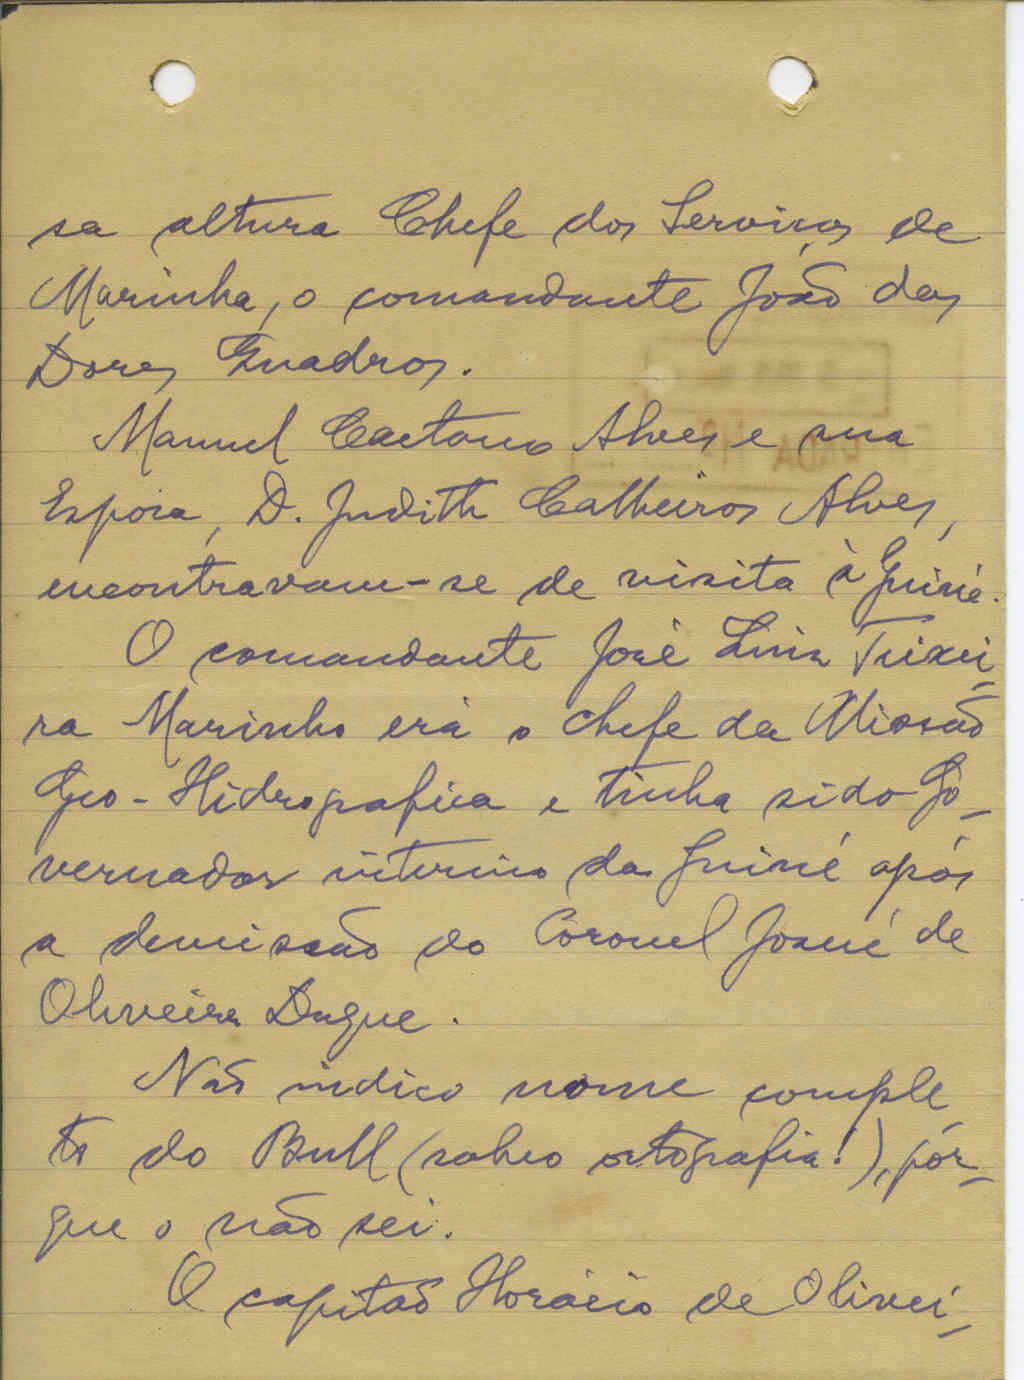 sa altura Chefe dos Serviços de
Marinha, o comandante João das
Dores Quadros.
Manuel Caetano Alves e sua
Esposa, D. Judith Calheiros Alves,
encontravam-se de visita à Guiné.
O comandante José Luiz Teixei-
ra Marinho erà o chefe da Missão
Geo-Hidrografica e tinha sido Go-
vernador interino da Guiné após
a demissão do Coronel Josué de
Oliveira Duque.
Não indico nome comple-
to do Bull (salvo ortografia!), por-
que o não sei.
O capitão Horácio de Olivei-